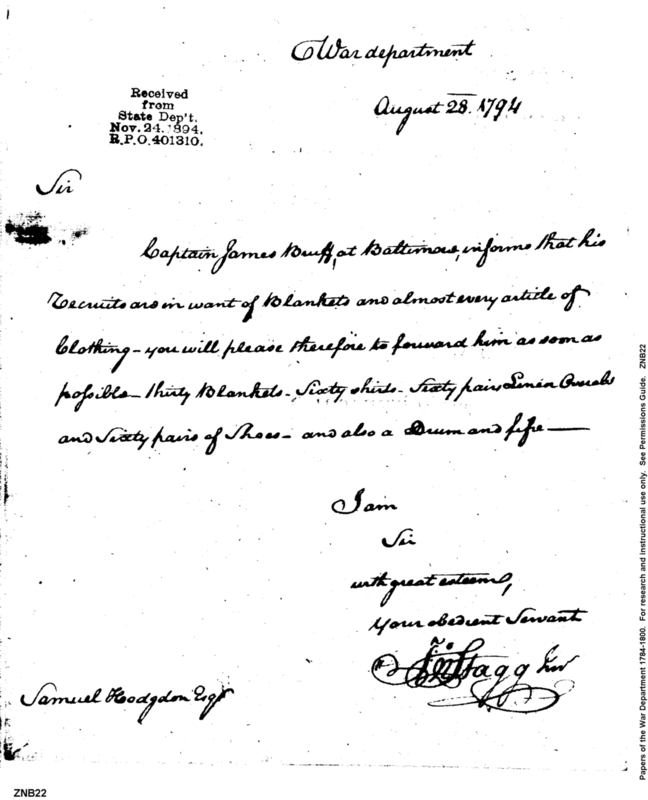 War department
August 28. 1794
Received
from
State Dep't.
Nov. 24. 1894.
R.P.O. 401310.
Sir
Captain James Bruff, at Baltimore, informs that his
recruits are in want of Blankets and almost every article of
Clothing – you will please therefore to forward him as soon as
possible – thirty Blankets – Sixty shirts – Sixty pairs Linen Overalls
and Sixty pairs of Shoes – and also a Drum and fife —
I am
Sir
with great esteem,
Your obedient Servant
Jno Stagg Junr
Samuel Hodgdon Esqr
ZNB22
Papers of the War Department 1784-1800. For research and instructional use only. See Permissions Guide. ZNB22